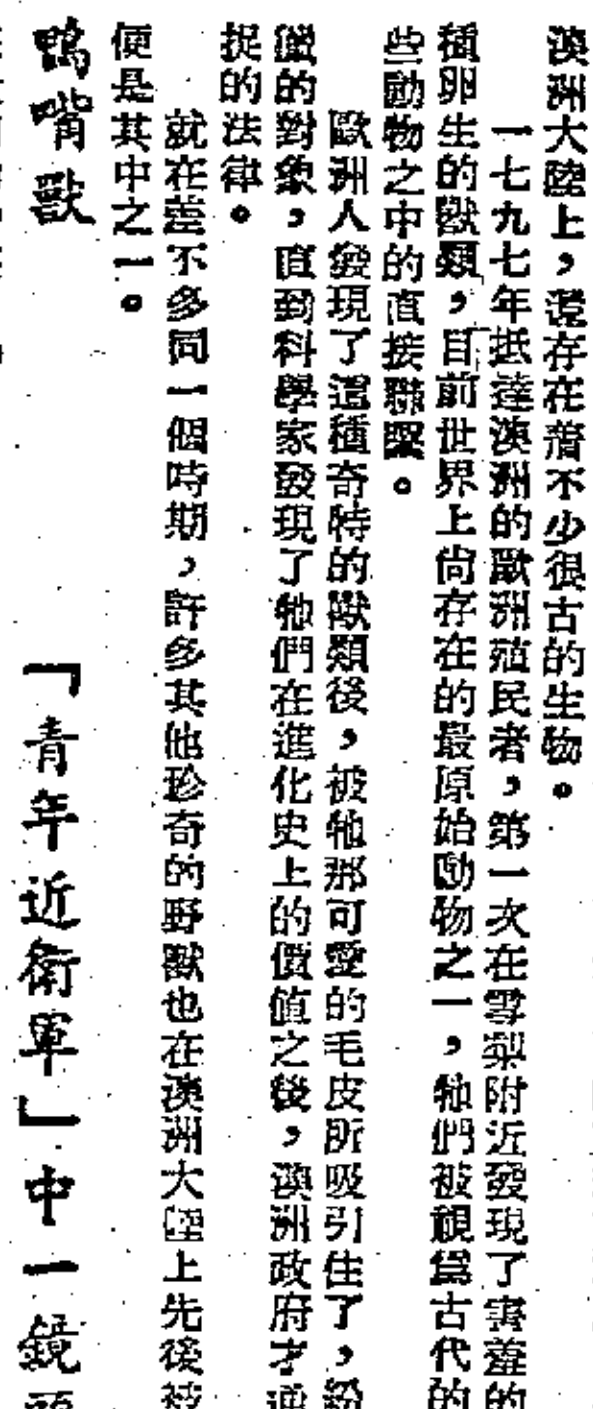 澳洲大陸上，還存在着不少很古的生物。
一七九七年抵達澳洲的歐洲殖民者，第一次在雪梨附近發現了害羞的
種卵生的獸類，目前世界上尙存在的最原始動物之一，牠們被視爲古代的
些動物之中的直接聯繫。
歐洲人發現了這種奇特的獸類後，被牠那可愛的毛皮所吸引住了，紛
獵的對象，直到科學家發現了牠們在進化史上的價值之後，澳洲政府才通
捉的法律。
就在差不多同一個時期，許多其他珍奇的野獸也在澳洲大陸上先後被
便是其中之一。
鴨嘴獸
「靑年近衛軍」中一鏡頭